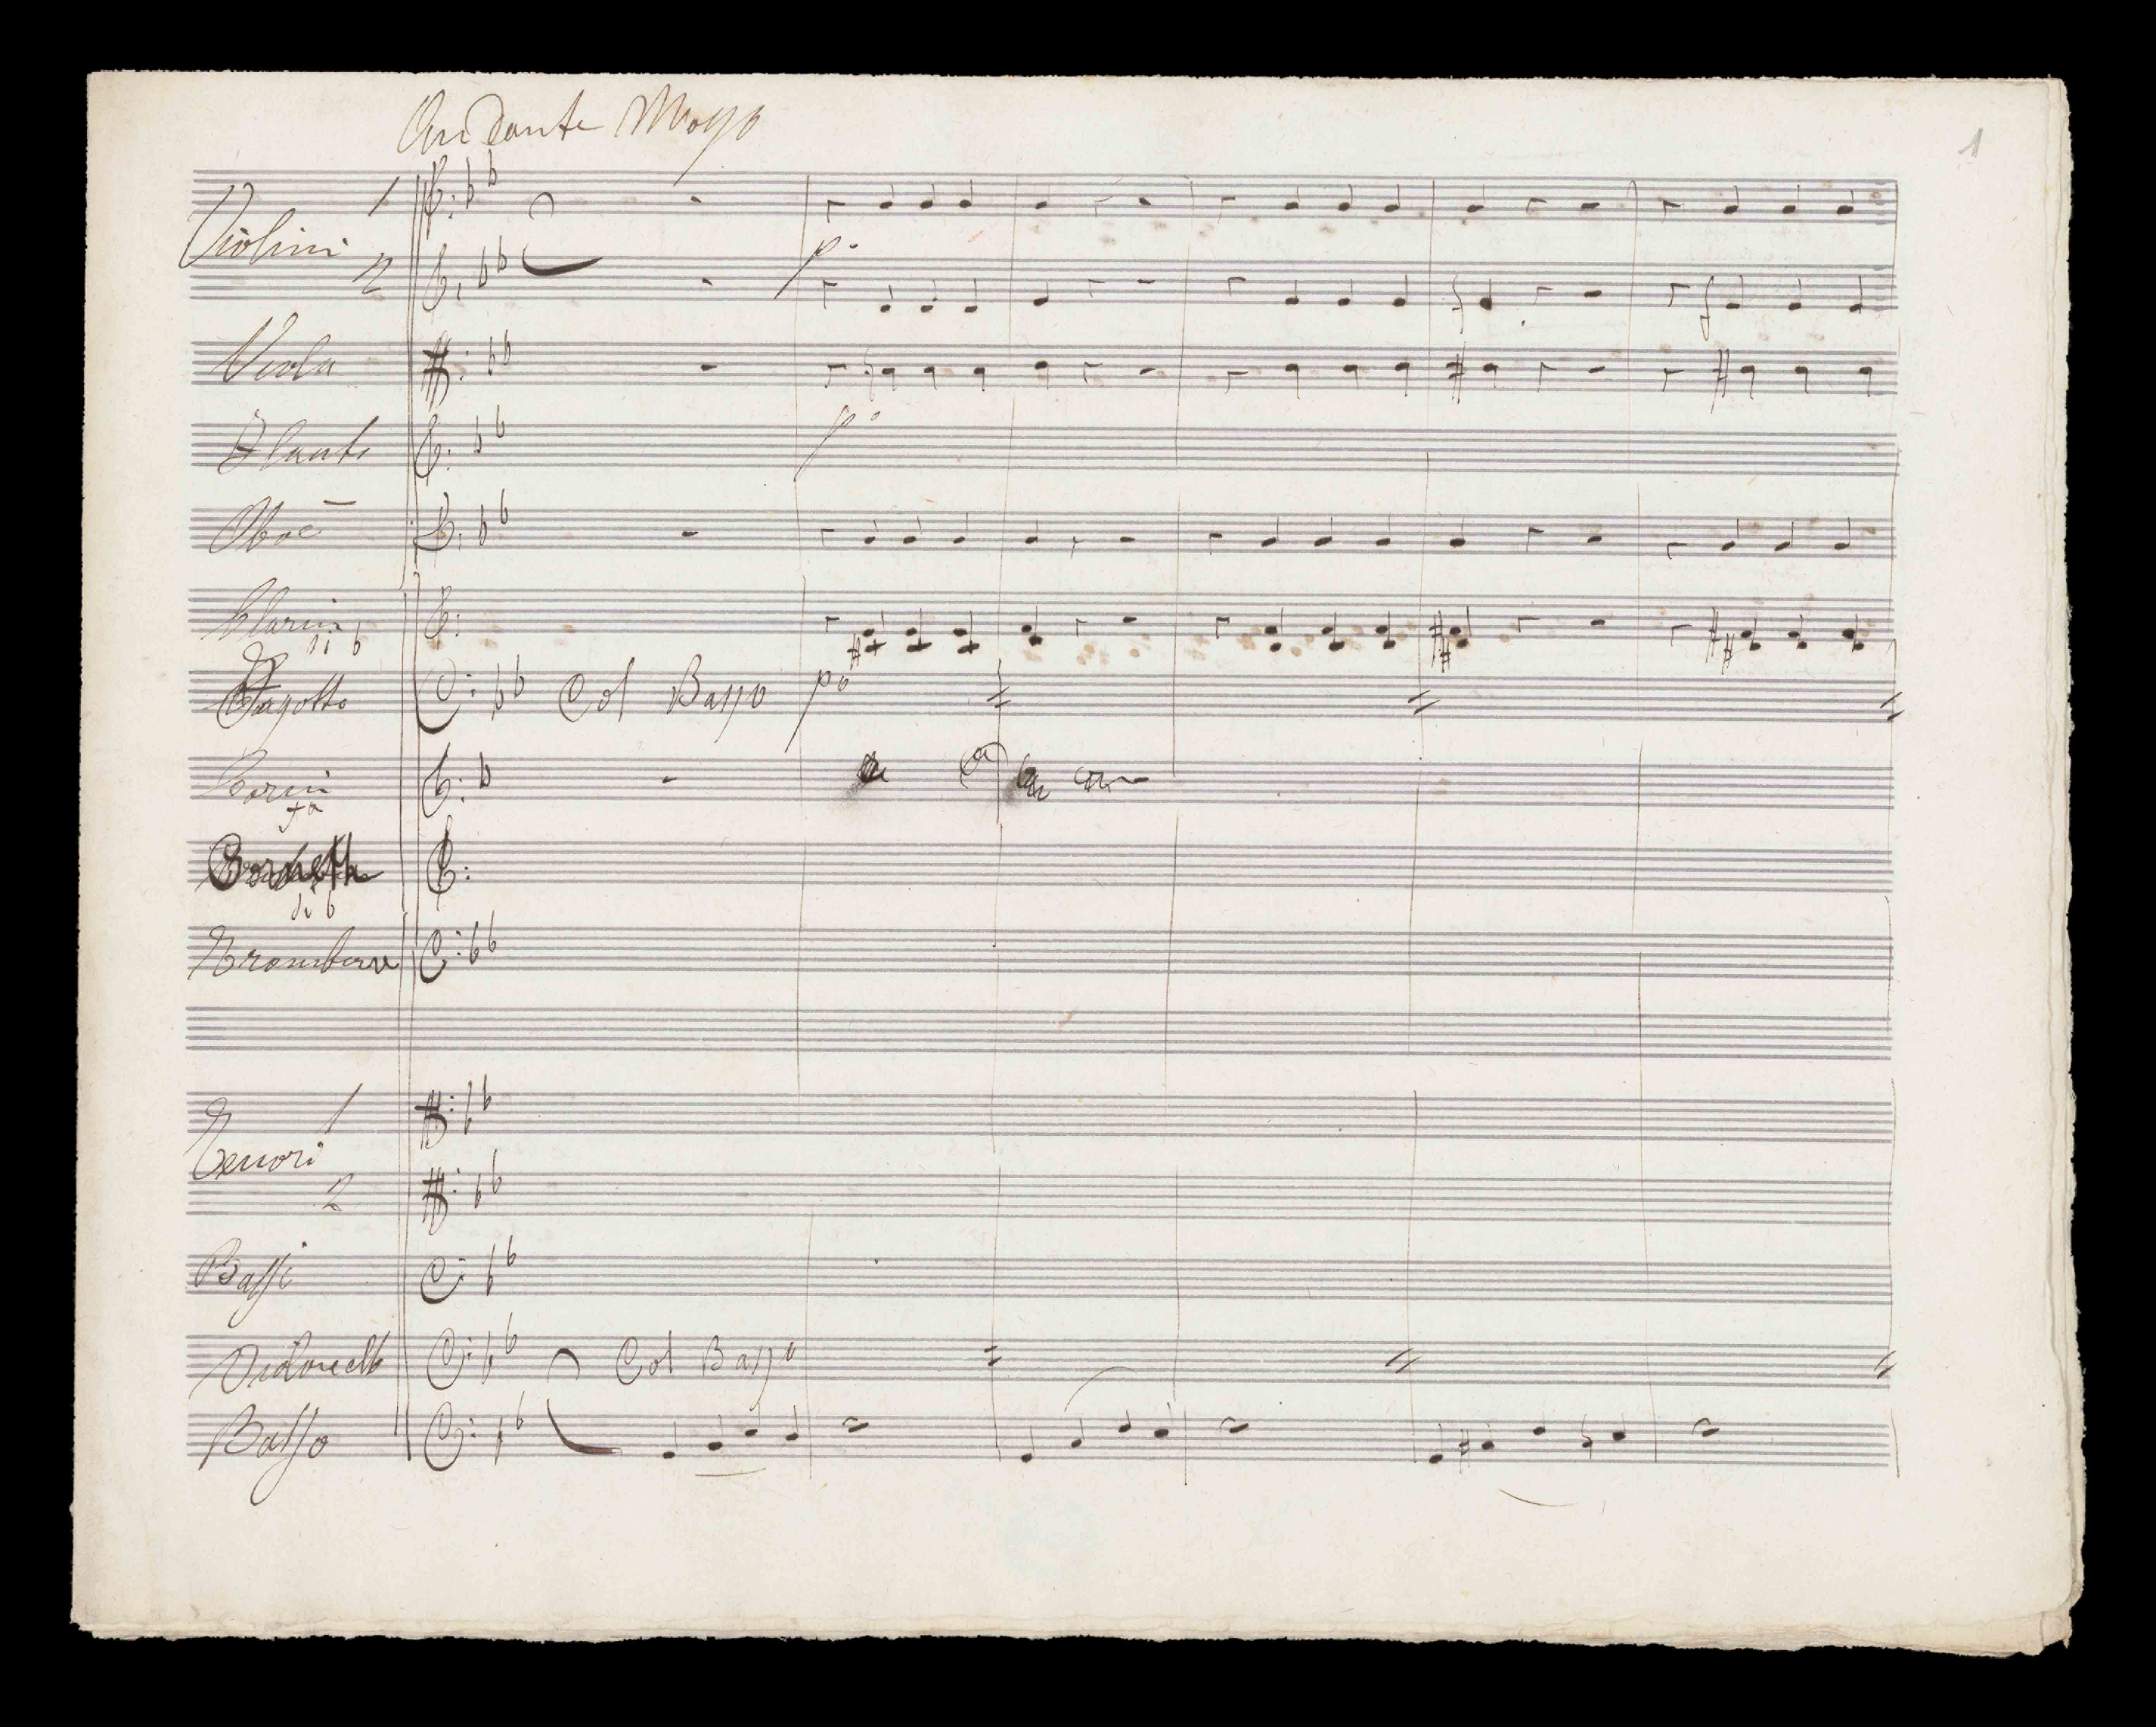 Andante Mosso
1
Violini 1
2
p.o
Viola
p.o
Flauto
Oboè
Clarin
di b
Fagotto Col Basso p.o
Corni
fa
di b
Trombone
Tenori 1
2
Bassi
Violoncello Col Basso
Basso